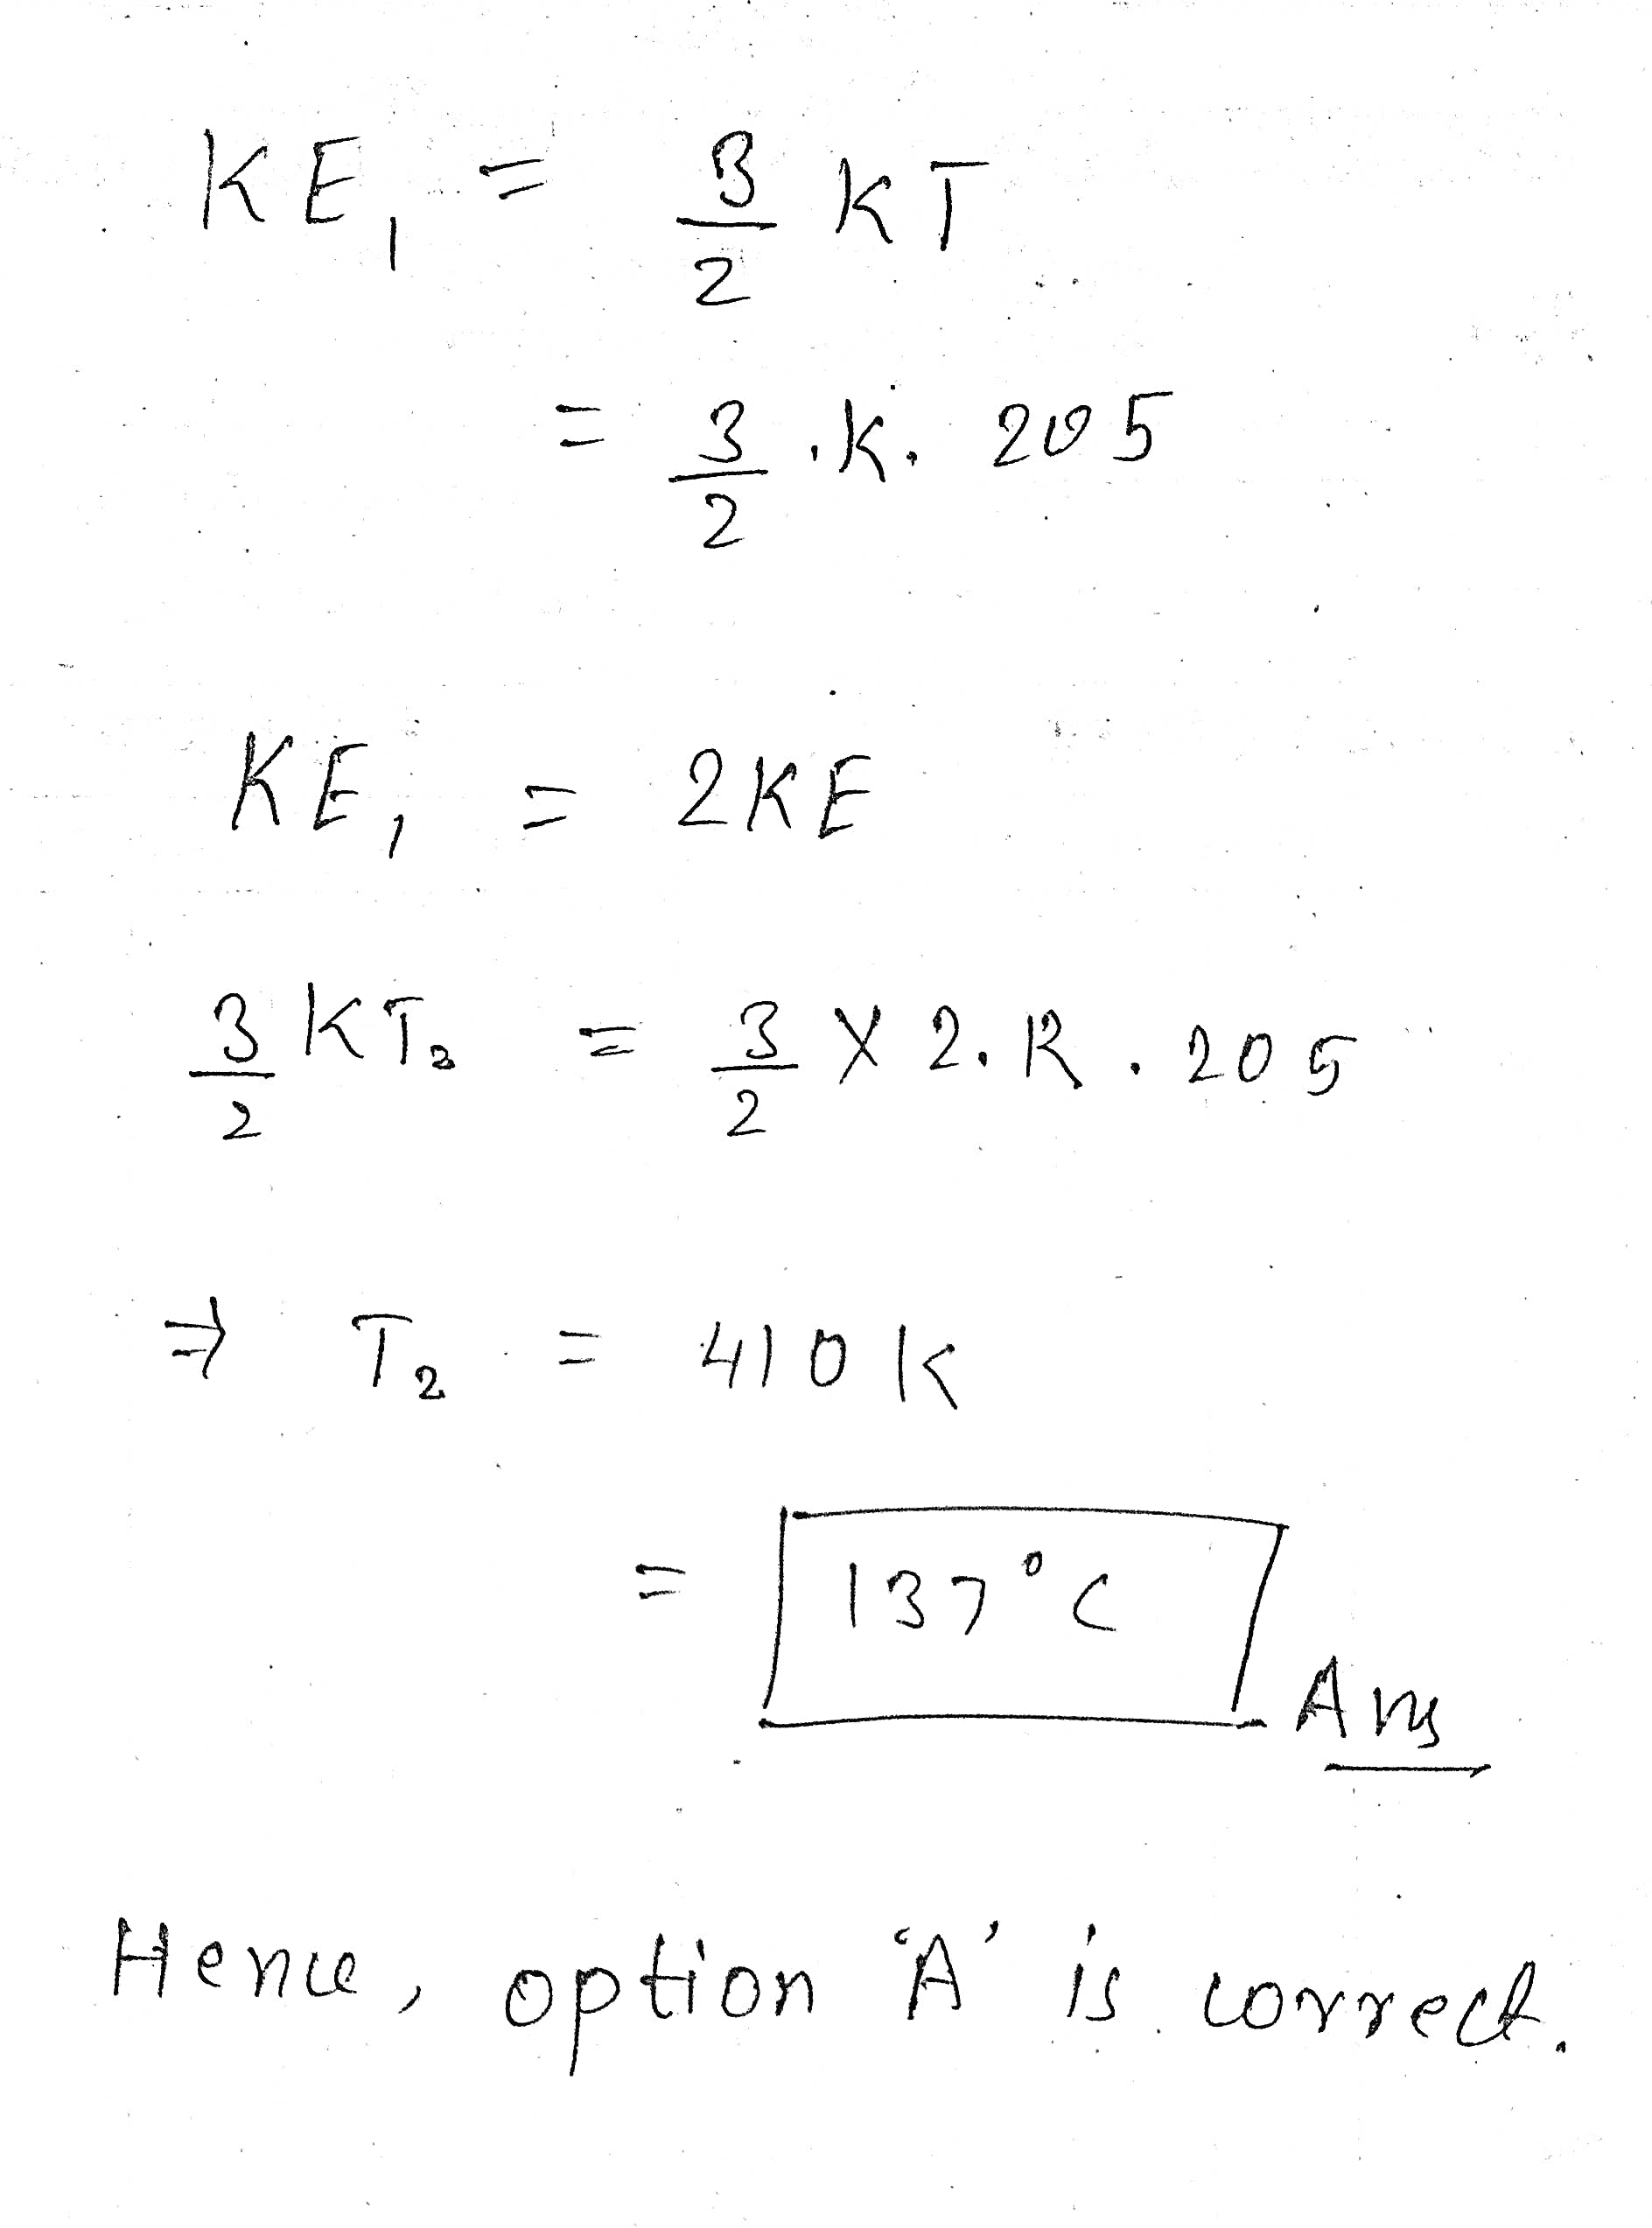 KE₁ = 3/2 KT
= 3/2 . K . 205
KE₁ = 2KE
3/2 KT₂ = 3/2 X 2 . K . 205
⇒ T₂ = 410 K
= 137°C Ans
Hence, option 'A' is correct.